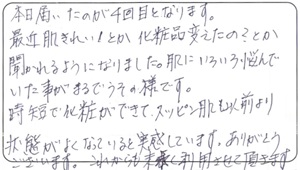 本日届いたのが4回目となります。
最近肌きれい!とか化粧品変えたの?とか
聞かれるようになりました。肌にいろいろ悩んで
いた事がまるでうその様です。
時短で化粧ができて、スッピン肌も以前より
状態がよくなっていると実感しています。ありがとう
ございます。これからも末長く利用させて頂きます